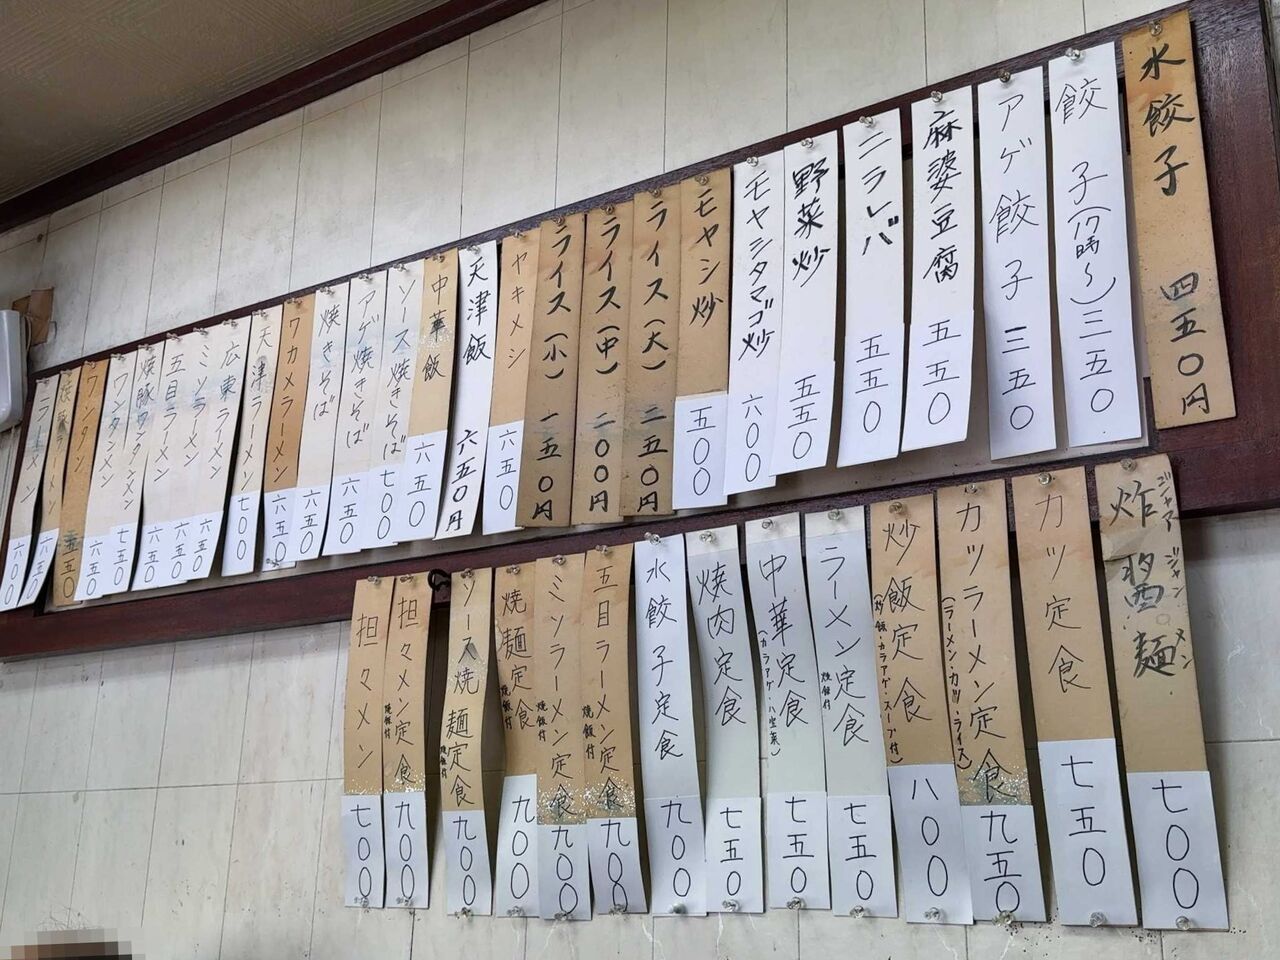 水餃子 四五〇円
餃子(17時〜)三五〇
アゲ餃子 三五〇
麻婆豆腐 五五〇
ニラレバ 五五〇
野菜炒 五五〇
モヤシタマゴ炒 六〇〇
モヤシ炒 五〇〇
ライス(大) 二五〇円
ライス(中) 二〇〇円
ライス(小) 一五〇円
ヤキメシ 六五〇
天津飯 六五〇円
中華飯 六五〇
ソース焼きそば 七〇〇
アゲ焼きそば 六五〇
焼きそば 六五〇
ワカメラーメン 六五〇
天津ラーメン 七〇〇
広東ラーメン 六五〇
ミソラーメン 六五〇
五目ラーメン 六五〇
焼豚ワンタンメン 七五〇
ワンタンメン 六五〇
ワンタン 五五〇
焼豚ラーメン 六五〇
ラーメン 六〇〇
炸醤麺 ジャージャンメン 七〇〇
カツ定食 七五〇
カツラーメン定食 (ラーメン・カツ・ライス) 九五〇
炒飯定食 (炒飯・カラアゲ・スープ付) 八〇〇
ラーメン定食 焼飯付 七五〇
中華定食 (カラアゲ・八宝菜) 七五〇
焼肉定食 七五〇
水餃子定食 九〇〇
五目ラーメン定食 焼飯付 九〇〇
ミソラーメン定食 焼飯付 九〇〇
焼麺定食 焼飯付 九〇〇
ソース焼麺定食 焼飯付 九〇〇
担々メン定食 焼飯付 九〇〇
担々メン 七〇〇